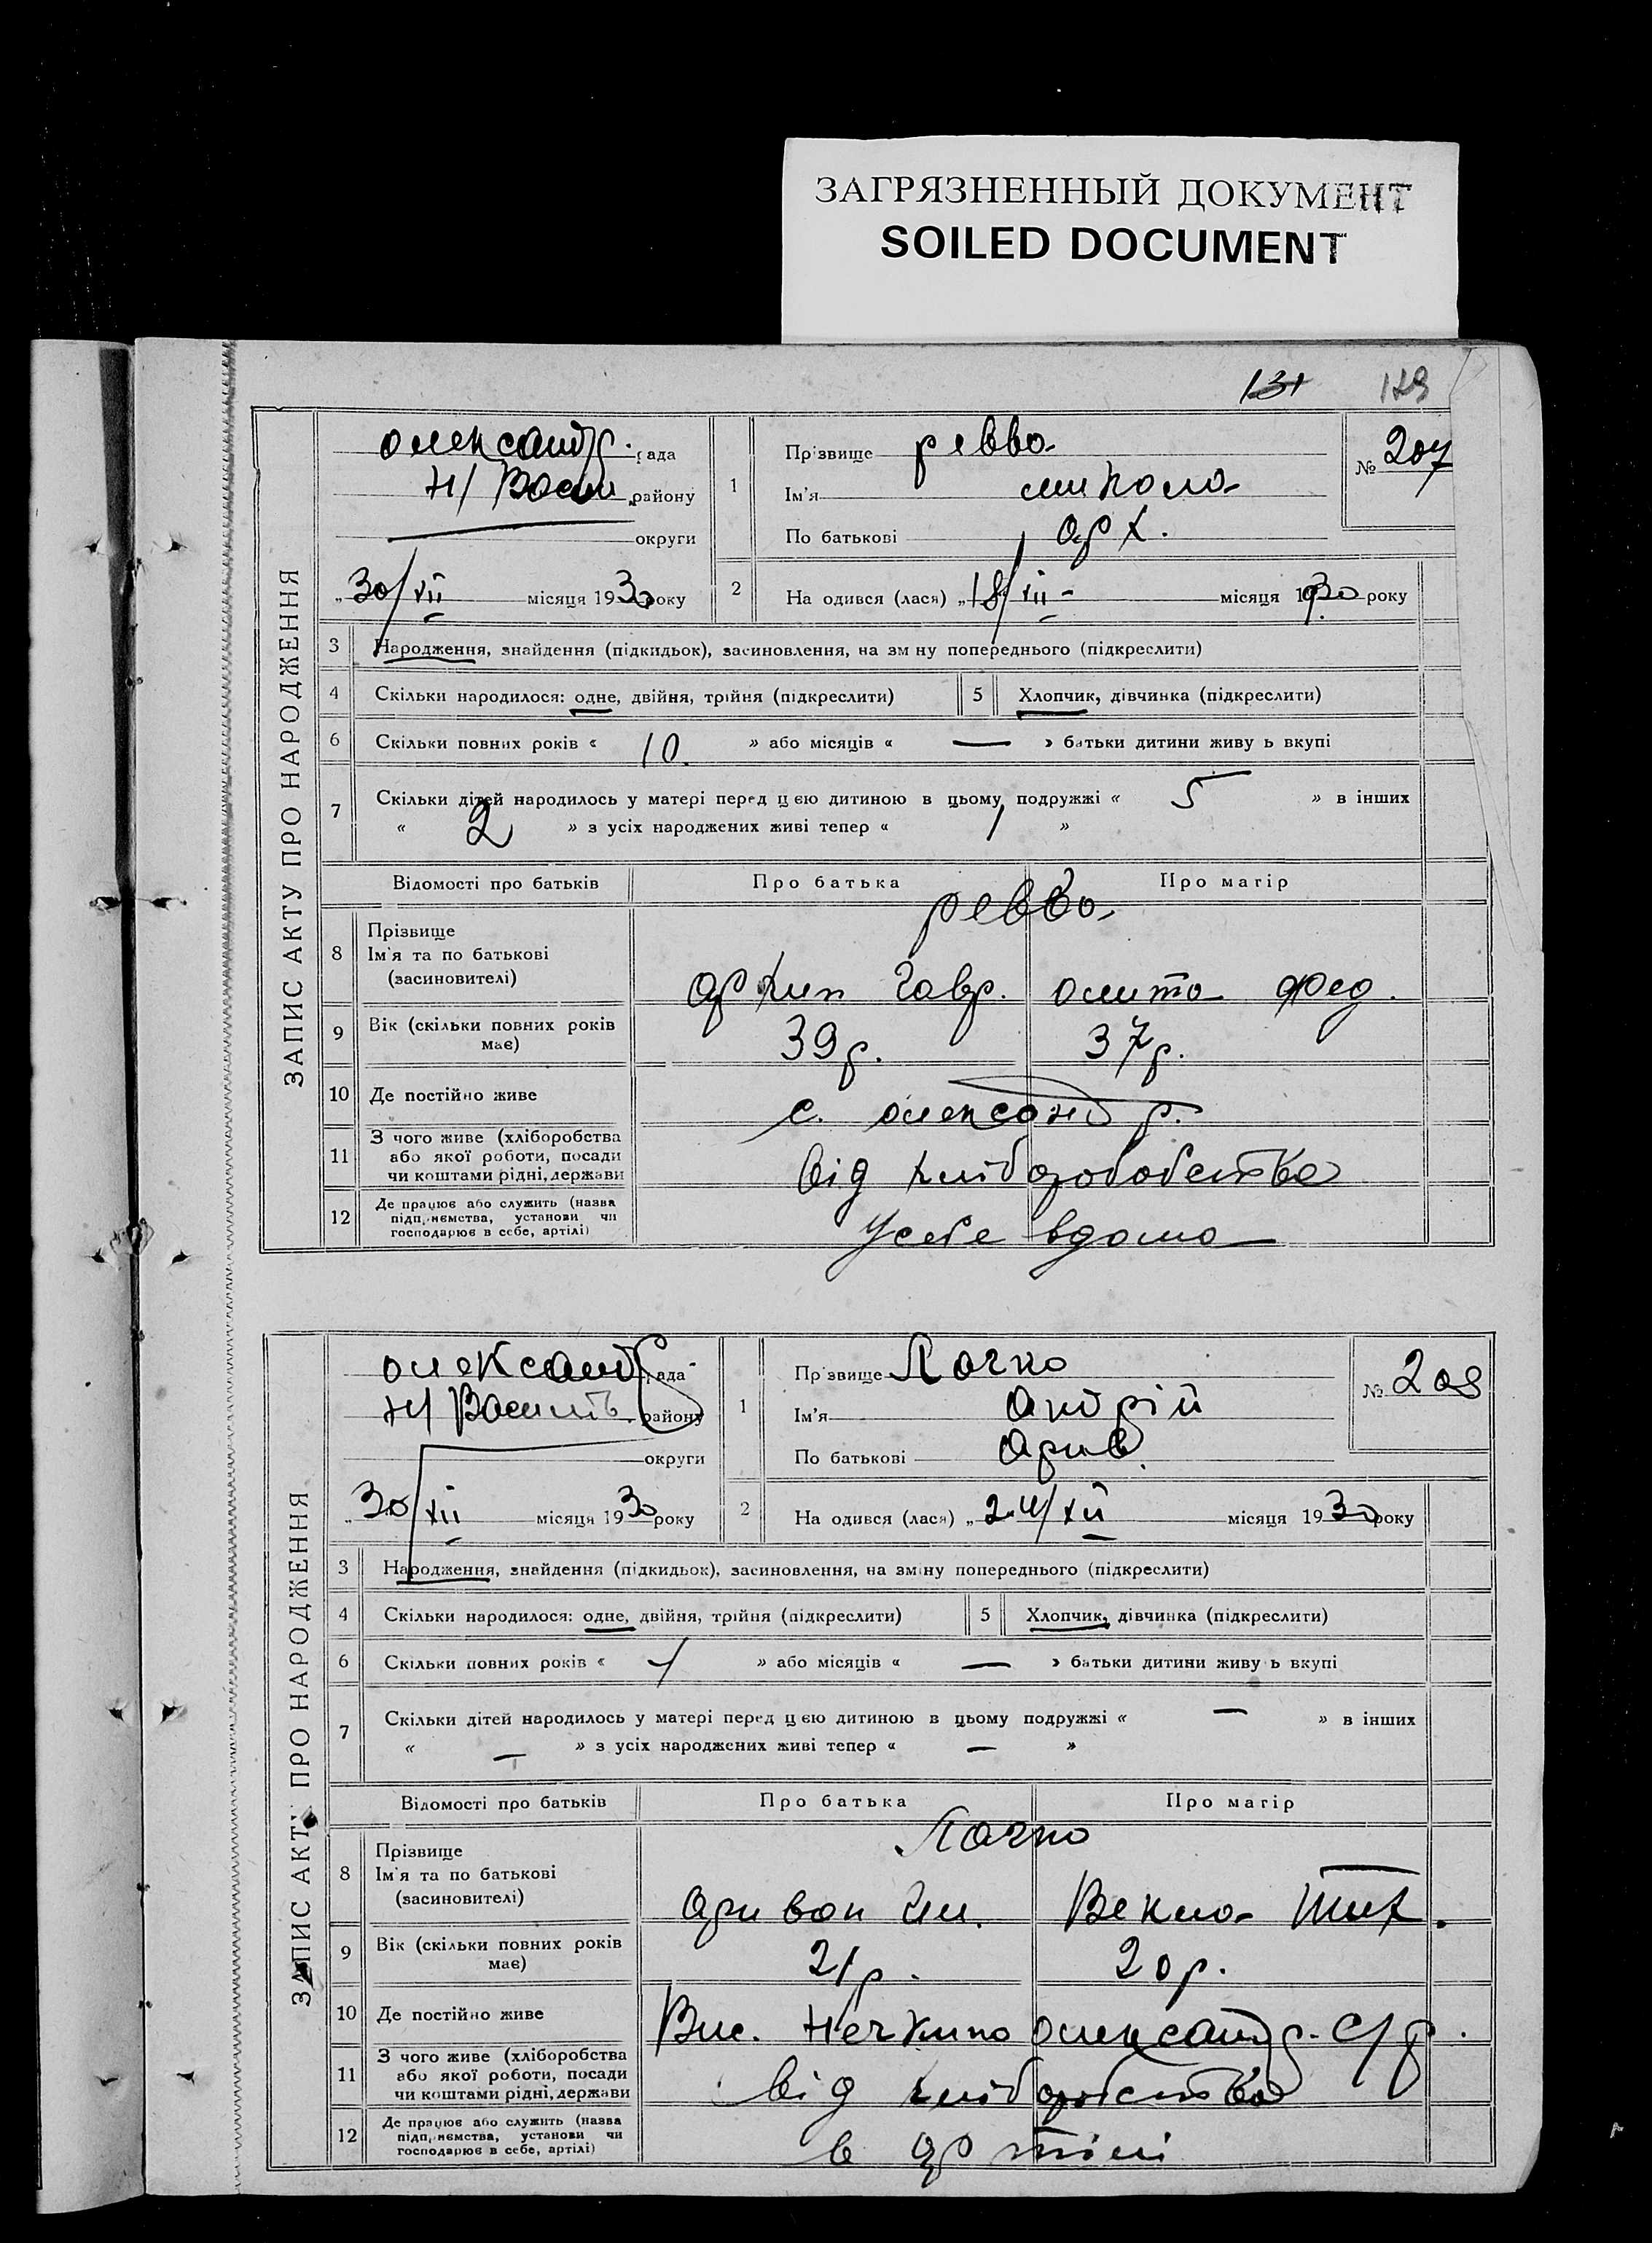 ЗАГРЯЗНЕННЫЙ ДОКУМЕНТ
SOILED DOCUMENT
131 129
ЗАПИС АКТУ ПРО НАРОДЖЕННЯ
олександр. рада
Н/ Васил. району
округи
„30/XII місяця 1930 року
1
Прізвище ревва
Ім'я микола
По батькові арх.
№ 207
2 На одився (лася) „18/XII - місяця 1930 року
3 Народження, знайдення (підкидьок), засиновлення, на зм ну попереднього (підкреслити)
4 Скільки народилося: одне, двійня, трійня (підкреслити) 5 Хлопчик, дівчинка (підкреслити)
6 Скільки повних років « 10. » або місяців « — » батьки дитини живу ь вкупі
7 Скільки дітей народилось у матері перед цією дитиною в цьому подружжі « 5 » в інших
« 2 » з усіх народжених живі тепер « 1 »
Відомості про батьків Про батька Про матір
ревва
8 Прізвище
Ім'я та по батькові
(засиновителі)
архип гавр. олита фед.
9 Вік (скільки повних років
має)
39 р. 37 р.
10 Де постійно живе с. олександр.
11 З чого живе (хліборобства
або якої роботи, посади
чи коштами рідні, держави
від хліборобобства
12 Де працює або служить (назва
підприємства, установи чи
господарює в себе, артілі)
Усебе вдома
ЗАПИС АКТУ ПРО НАРОДЖЕННЯ
олександр рада
Н/ Василь. району
округи
„30/XII місяця 1930 року
1
Пр звище Лачко
Ім'я андрій
По батькові
№ 208
2 На одився (лася) „24/XII місяця 1930 року
3 Народження, знайдення (підкидьок), засиновлення, на зміну попереднього (підкреслити)
4 Скільки народилося: одне, двійня, трійня (підкреслити) 5 Хлопчик, дівчинка (підкреслити)
6 Скільки повних років « 1 » або місяців « — » батьки дитини живу ь вкупі
7 Скільки дітей народилось у матері перед цією дитиною в цьому подружжі « — » в інших
« — » з усіх народжених живі тепер « — »
Відомості про батьків Про батька Про матір
Лачко
8 Прізвище
Ім'я та по батькові
(засиновителі)
Векла Тих.
9 Вік (скільки повних років
має)
21 р. 20 р.
10 Де постійно живе Вис. олександр. с/р.
11 З чого живе (хліборобства
або якої роботи, посади
чи коштами рідні, держави
від хліборобства
12 Де працює або служить (назва
підприємства, установи чи
господарює в себе, артілі)
в артілі